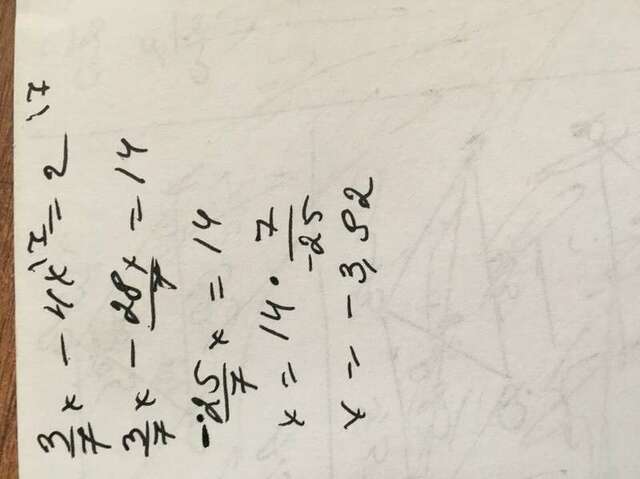 3/7 x - 4x \7 = 2 \7
3/7 x - 28x/7 = 14
-25/7 x = 14
x = 14 · 7/-25
x = -3,92